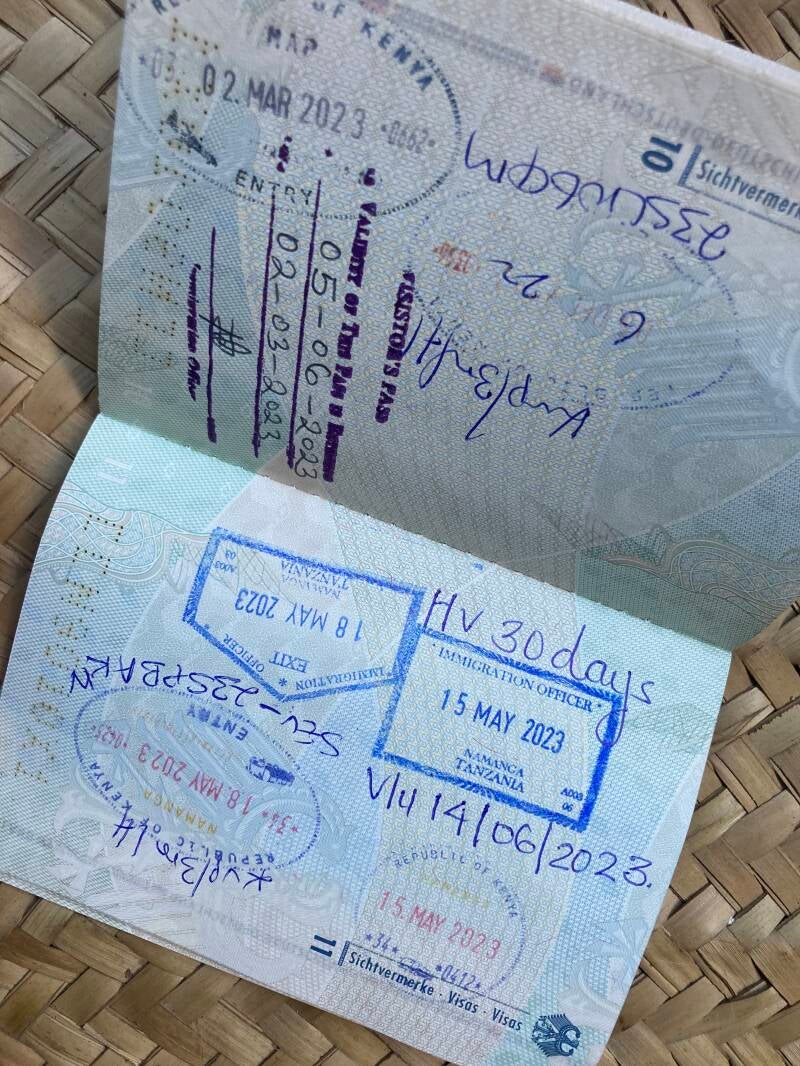 OF KENYA
MAP
02. MAR 2023
*0662*
ENTRY
VISISTOR'S PASS
VALIDITY OF THIS PASS IS
05-06-2023
02-03-2023
Immigration Officer
10
Sichtvermerke
6
22
Kvp/3m/H
HV 30 days
* IMMIGRATION OFFICER *
15 MAY 2023
NAMANGA
TANZANIA
A003
06
V/U 14/06/2023.
IMMIGRATION OFFICER *
EXIT
18 MAY 2023
NAMANGA
TANZANIA
A003
03
SEV-23SPBAKN
ENTRY
*34* 18 MAY 2023
NAMANGA
REPUBLIC OF KENYA
Kvp/3m/H
REPUBLIC OF KENYA
15. MAY 2023
*34* *0412*
11
Sichtvermerke · Visas · Visas